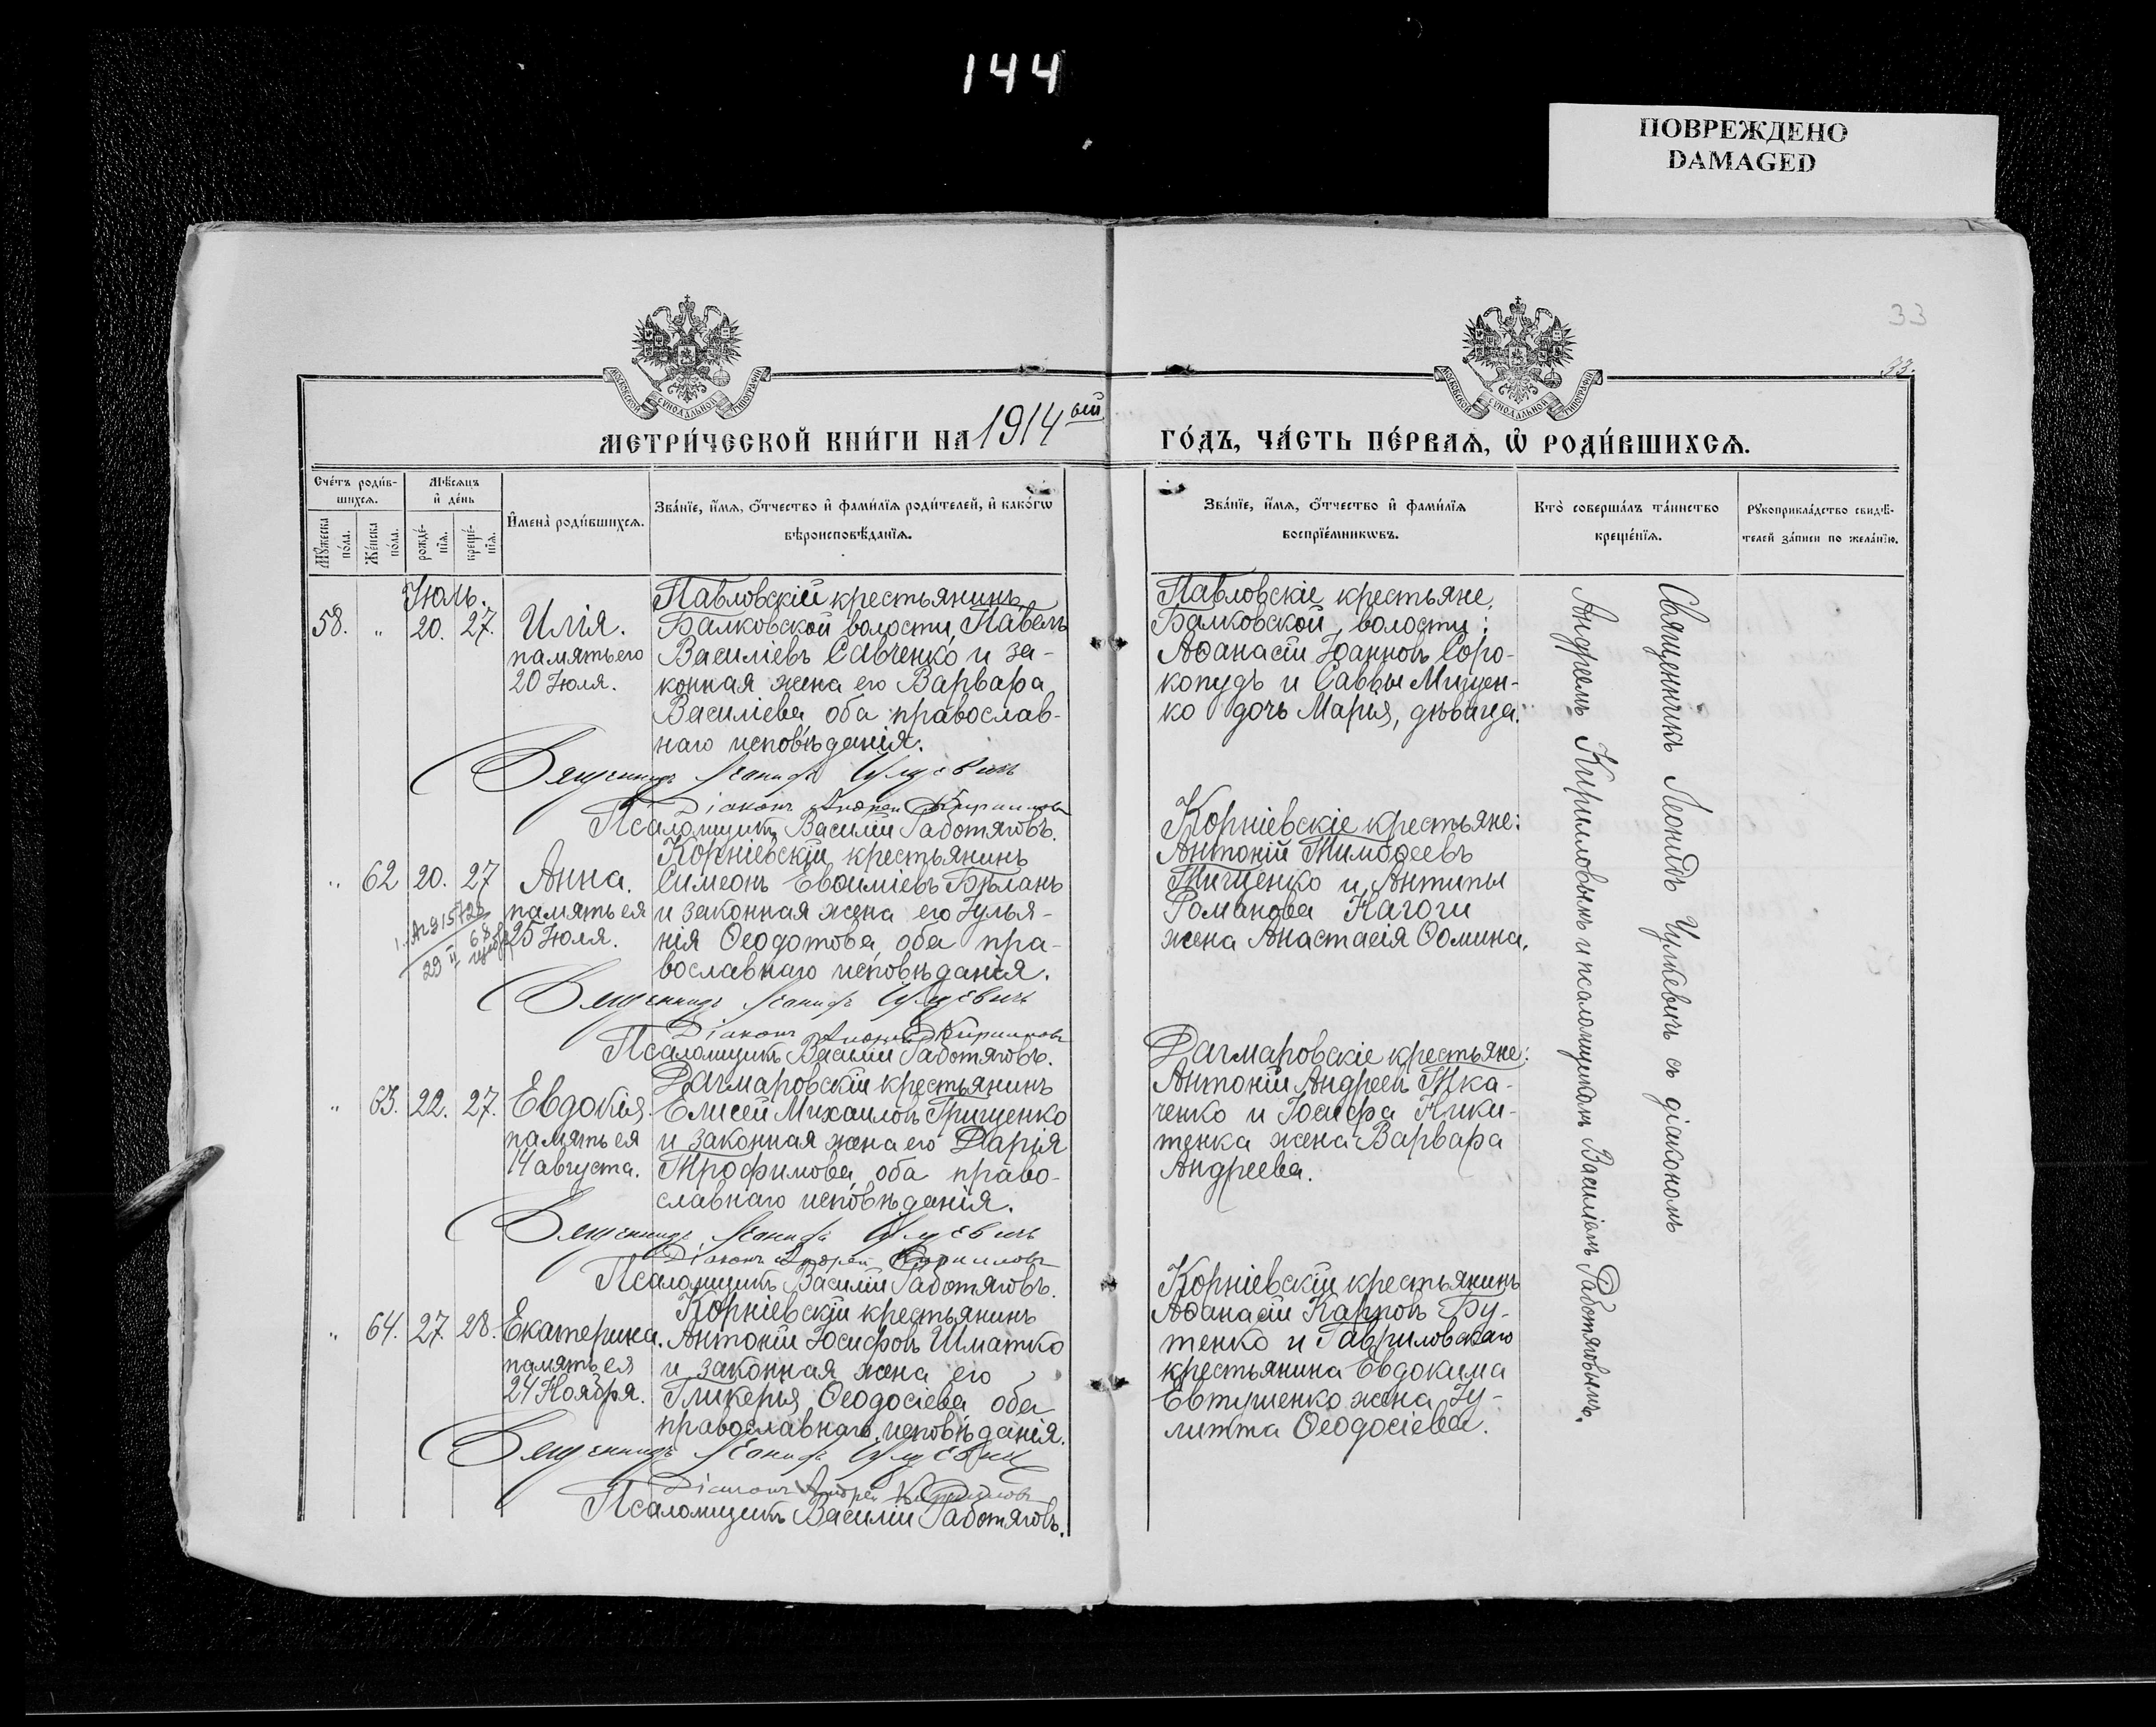 144
ПОВРЕЖДЕНО
DAMAGED
33
33.
МОСКОВСКОЙ СѴНОДАЛЬНОЙ ТИПОГРАФІИ
МОСКОВСКОЙ СѴНОДАЛЬНОЙ ТИПОГРАФІИ
МЕТРИ́ЧЕСКОЙ КНИ́ГИ НА 1914ый ГО́ДЪ, ЧА́СТЬ ПЕ́РВАѦ, Ѡ҆ РОДИ́ВШИХСѦ.
Сче́тъ роди́в-
шихсѧ.
Мꙋжеска по́ла.
Же́нска по́ла.
Мѣ́сѧцъ
и҆ де́нь
рожде́-
нїѧ.
креще́-
нїѧ.
И҆мена̀ роди́вшихсѧ.
Зва́нїе, и҆́мѧ, ѻ҆́тчество и҆ фами́лїѧ роди́телей, и҆ како́гѡ
вѣроисповѣ́данїѧ.
Зва́нїе, и҆́мѧ, ѻ҆́тчество и҆ фами́лїѧ
воспрїе́мникѡвъ.
Кто̀ соверша́лъ та́инство
креще́нїѧ.
Рꙋкоприкла́дство свидѣ́-
телей за́писи по жела́нїю.
Іюль.
58. „ 20. 27.
Илія.
память его
20 Іюля.
Павловскій крестьянинъ
Балковской волости, Павелъ
Василіевъ Савченко и за-
конная жена его Варвара
Василіева, оба православ-
наго исповѣданія.
Священникъ Леонидъ Чулкевичъ
Діаконъ Андрей Кирилловъ
Псаломщикъ Василій Работяговъ.
Павловскіе крестьяне,
Балковской, волости:
Аѳанасій Іоанновъ Соро-
копудъ и Саввы Мищен-
ко дочь Марья, дѣвица.
„ 62 20. 27
Анна.
память ея
25 Іюля.
Корніевскій крестьянинъ
Симеонъ Евѳиміевъ Бѣланъ
и законная жена его Іулья-
нія Ѳеодотова, оба пра-
вославнаго исповѣданія.
Священникъ Леонидъ Чулкевичъ
Діаконъ Андрей Кирилловъ
Псаломщикъ Василій Работяговъ.
Корніевскіе крестьяне:
Антоній Тимоѳеевъ
Тищенко и Антипы
Романова Нагоги
жена Анастасія Ѳомина.
„ 63. 22. 27.
Евдокія.
память ея
14 августа.
Дагмаровскій крестьянинъ
Елисей Михаиловъ Грищенко
и законная жена его Дарія
Трофимова, оба право-
славнаго исповѣданія.
Священникъ Леонидъ Чулкевичъ
Діаконъ Андрей Кирилловъ
Псаломщикъ Василій Работяговъ.
Дагмаровскіе крестьяне:
Антоній Андреевъ Тка-
ченко и Іосифа Ники-
тенка жена Варвара
Андреева.
„ 64. 27. 28.
Екатерина.
память ея
24 Ноября.
Корніевскій крестьянинъ
Антоній Іосифовъ Шматко
и законная жена его
Гликерья Ѳеодосіева, оба
православнаго исповѣданія.
Священникъ Леонидъ Чулкевичъ
Діаконъ Андрей Кирилловъ
Псаломщикъ Василій Работяговъ.
Корніевскій крестьянинъ
Аѳанасій Карповъ Бу-
тенко и Гавриловскаго
крестьянина Евдокима
Евтушенко жена Іу-
литта Ѳеодосіева.
Священникъ Леонидъ Чулкевичъ съ діакономъ
Андреемъ Кириловымъ и псаломщикомъ Василіемъ Работяговымъ.